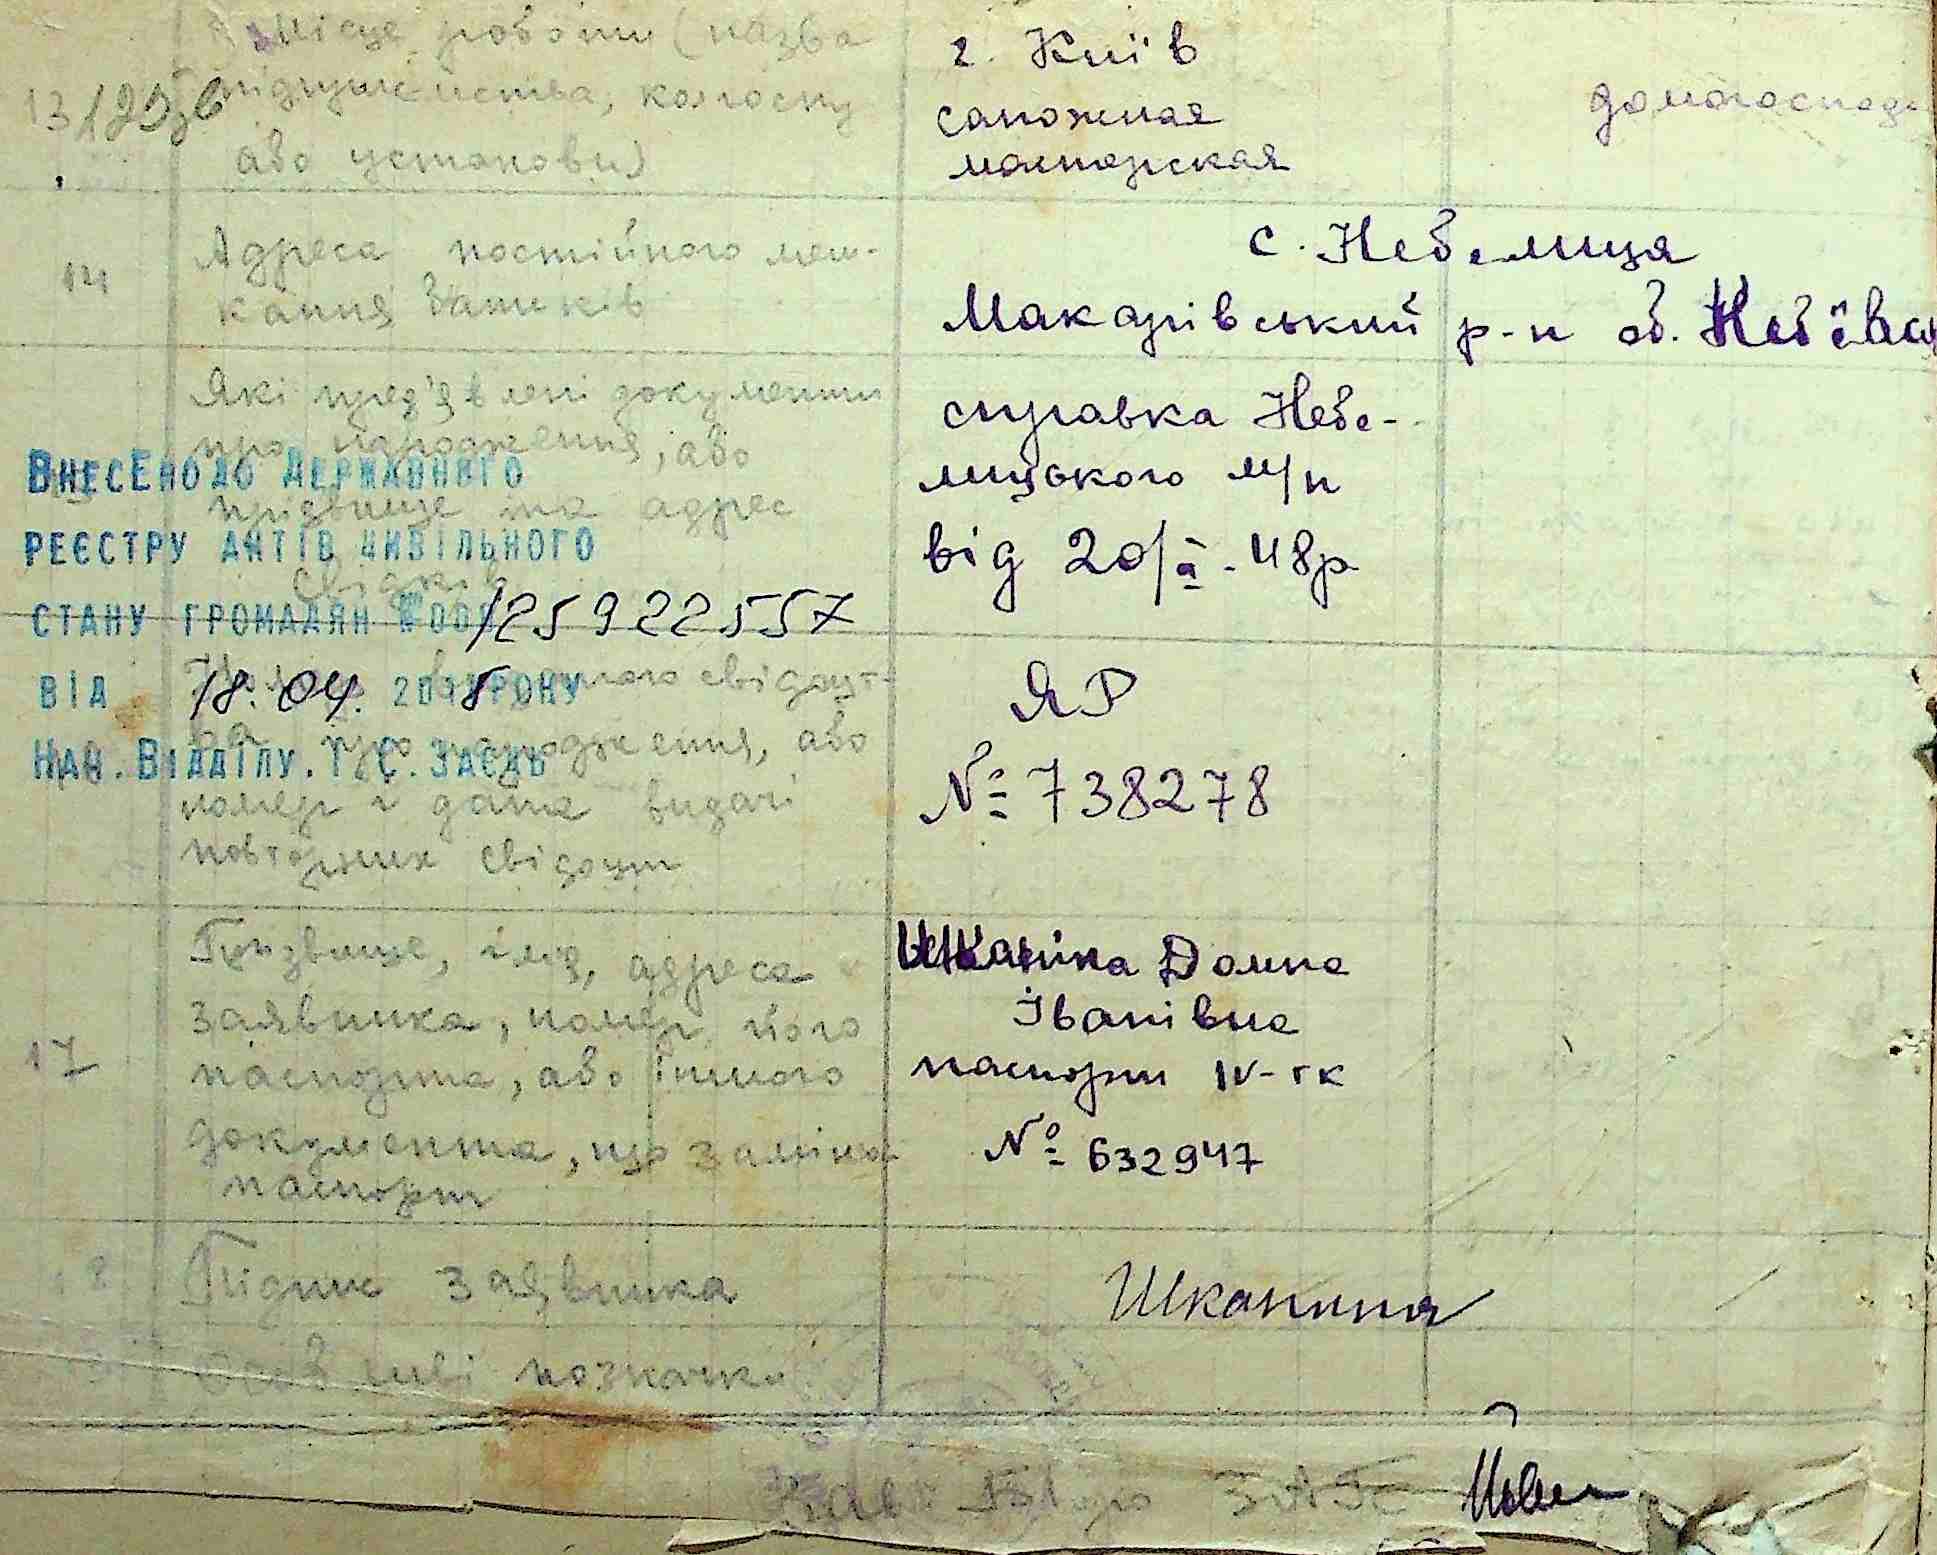 Місце роботи (назва
г. Київ
13
підприємства, колгоспу
сапожная
домогоспода
або установи)
мастерская
14
Адреса постійного меш-
кання батьків
с. Небелиця
Макарівський р-н об.
Які пред'явлені документи
про народження, або
прізвище та адрес
свідків
справка Небе-
лицького
від 20/ 48р
ВНЕСЕНО ДО ДЕРЖАВНОГО
РЕЄСТРУ АКТІВ ЦИВІЛЬНОГО
СТАНУ ГРОМАДЯН №00125922557
ВІД 18.04. 2018 РОКУ
НАЧ. ВІДДІЛУ
свідоцт-
ва про народження, або
номер і дата видачі
повторних свідоцт
ЯР
№ 738278
17
Прізвище, імя, адреса
заявника, номер його
паспорта, або іншого
документа, що заміня
паспорт
Шканіна Домна
Іванівна
паспорт IV-ГК
№ 632947
18
Підпис заявника
Шканина
позначки
Бюро ЗАГС